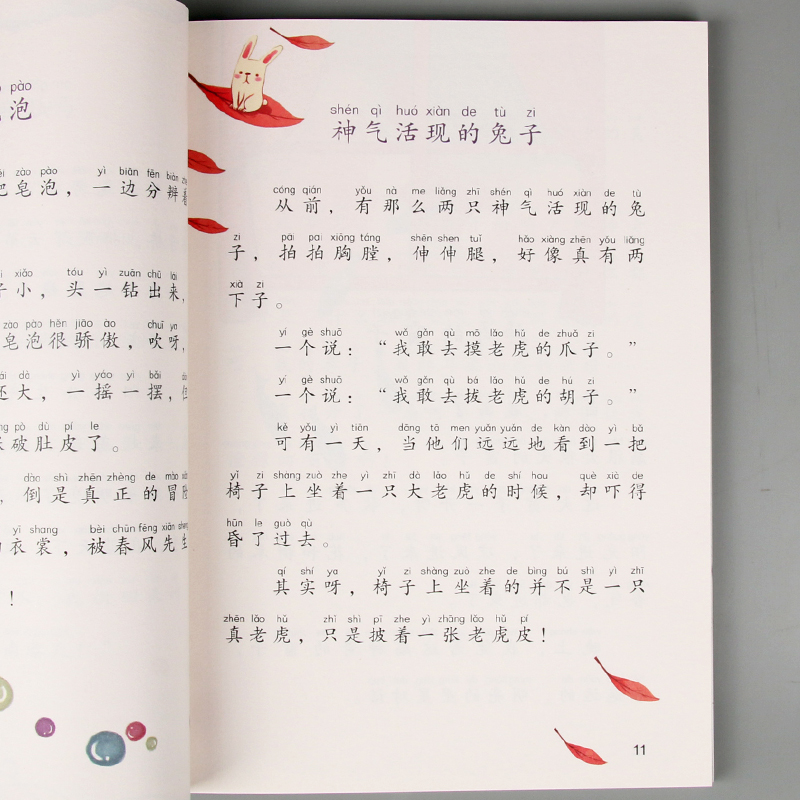 pào
泡
zào pào yì biān fēn biàn zhe
把皂泡，一边分辨着
xiǎo tóu yì zuān chū lái
子小，头一钻出来，
zào pào hěn jiāo ào chuī ya
皂泡很骄傲，吹呀，
dà yì yáo yì bǎi
还大，一摇一摆，
pò dù pí le
破肚皮了。
dào shì zhēn zhèng de mào xiǎn
，倒是真正的冒险
yī shang bèi chūn fēng xiān sheng
衣裳，被春风先生
！
shén qì huó xiàn de tù zi
神气活现的兔子
cóng qián yǒu nà me liǎng zhī shén qì huó xiàn de tù
从前，有那么两只神气活现的兔
zi pāi pai xiōng táng shēn shen tuǐ hǎo xiàng zhēn yǒu liǎng
子，拍拍胸膛，伸伸腿，好像真有两
xià zi
下子。
yí gè shuō wǒ gǎn qù mō lǎo hǔ de zhuǎ zi
一个说：“我敢去摸老虎的爪子。”
yí gè shuō wǒ gǎn qù bá lǎo hǔ de hú zi
一个说：“我敢去拔老虎的胡子。”
kě yǒu yì tiān dāng tā men yuǎn yuǎn de kàn dào yì bǎ
可有一天，当他们远远地看到一把
yǐ zi shàng zuò zhe yì zhī dà lǎo hǔ de shí hou què xià de
椅子上坐着一只大老虎的时候，却吓得
hūn le guò qù
昏了过去。
qí shí ya yǐ zi shàng zuò zhe de bìng bú shì yì zhī
其实呀，椅子上坐着的并不是一只
zhēn lǎo hǔ zhǐ shì pī zhe yì zhāng lǎo hǔ pí
真老虎，只是披着一张老虎皮！
11